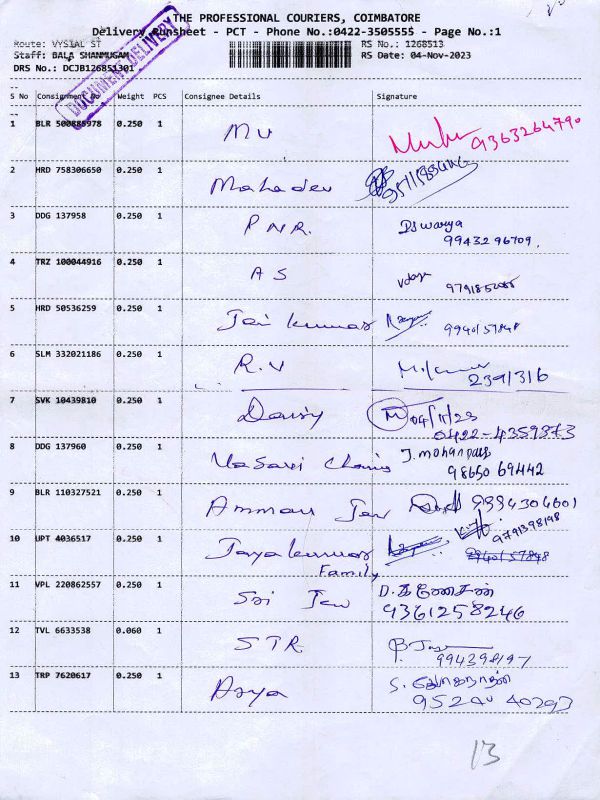 THE PROFESSIONAL COURIERS, COIMBATORE
Delivery Runsheet - PCT - Phone No.:0422-3505555 - Page No.:1
Route: VYSIAL ST RS No.: 1268513
Staff: BALA SHANMUGAM RS Date: 04-Nov-2023
DRS No.: DCJB126851301
DOCUMENT DELIVERY
S No Consignment No Weight PCS Consignee Details Signature
1 BLR 500885978 0.250 1 MU 9363264790
2 HRD 758306650 0.250 1 Mahadev
3 DDG 137958 0.250 1 P N R. Iswarya
9943296709.
4 TRZ 100044916 0.250 1 A S Udaya
5 HRD 50536259 0.250 1 Jai kumar 9940157848
6 SLM 332021186 0.250 1 R.V
2391316
7 SVK 10439810 0.250 1 Daisy M 04/11/23
0422-4359373
8 DDG 137960 0.250 1 Vasavi J. mohanraj
98650 69442
9 BLR 110327521 0.250 1 Amman Jew 9394304601
10 UPT 4036517 0.250 1 Jayakumar 9791398198
Family 9940157848
11 VPL 220862557 0.250 1 Sri Jew D. கணேசன்
9361258246
12 TVL 6633538 0.060 1 STR
13 TRP 7620617 0.250 1 Arya S.
13